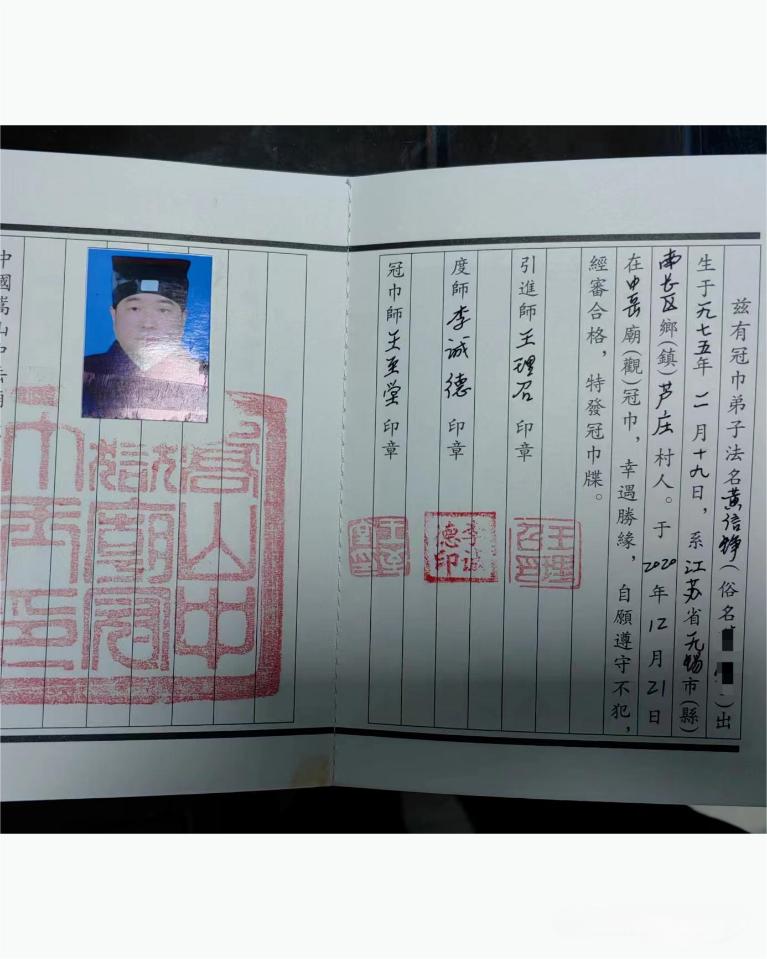 兹有冠巾弟子法名黄信峥(俗名
)出
生于一九七五年二月十九日，系江苏省无锡市(縣)
南长区鄉(鎮)芦庄村人。于2020年12月21日
在中岳廟(觀)冠巾，幸遇勝緣，自願遵守不犯，
經審合格，特發冠巾牒。
引進師王理召印章
度師李诚德印章
冠巾師王至堂印章
李诚德印
嵩山中
嶽廟冠
巾之印
中國嵩山中岳廟